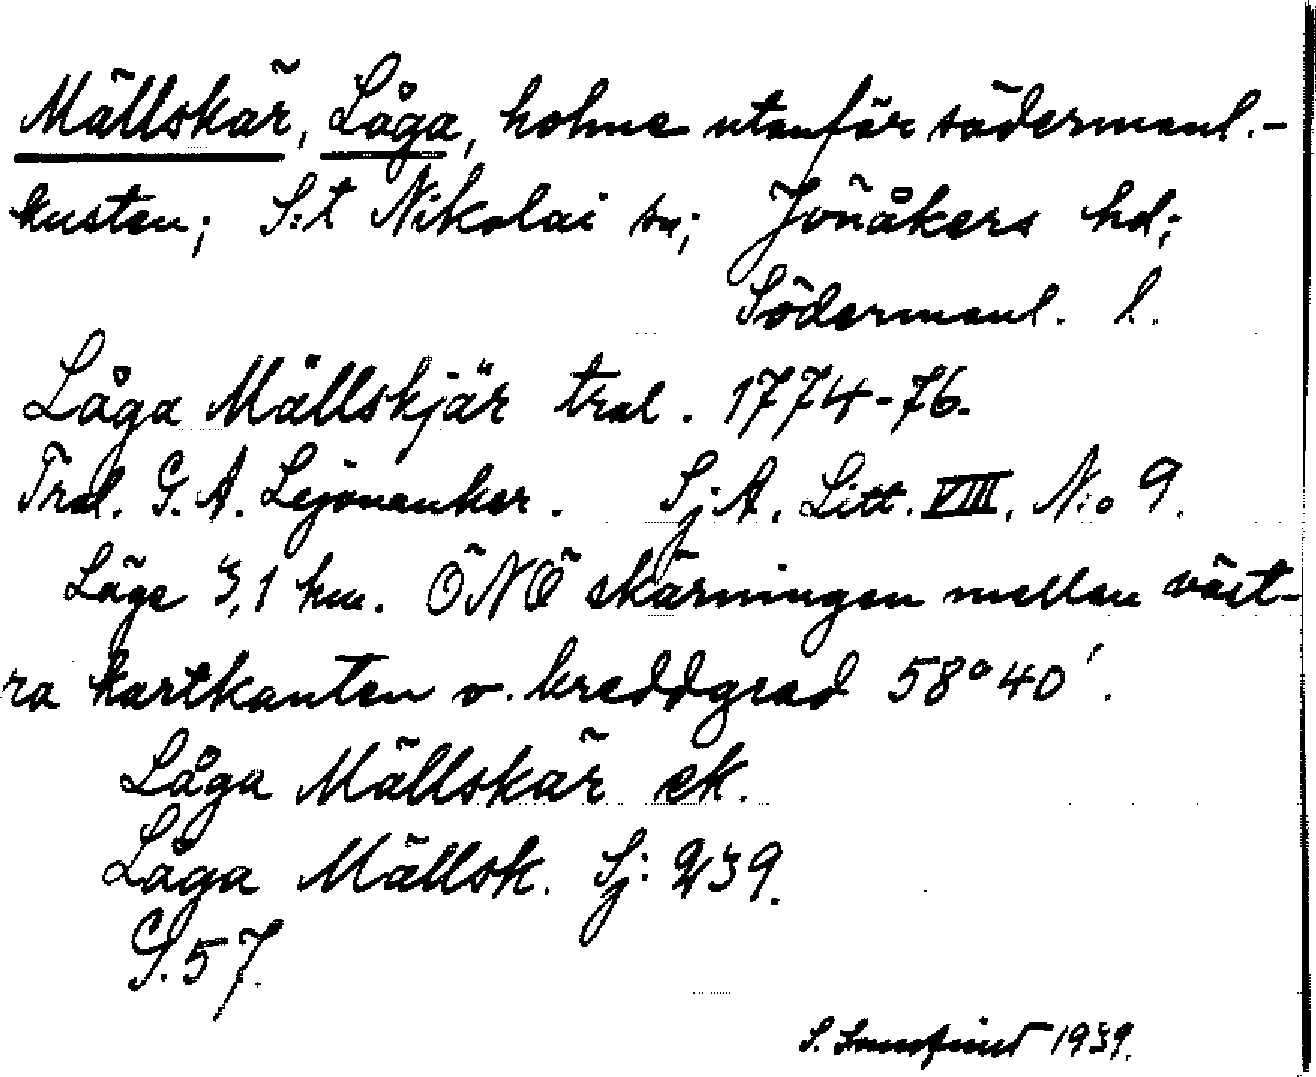 Mällskär, Låga, holme utanför södermanl.-
kusten; S:t Nikolai sn; Jönåkers hd;
Södermanl. l.
Låga Mällskjär tral. 1774-76.
Tral. G. A. Lejonanker. Sj. A. Litt. VIII. N:o 9.
Läge 3,1 km. ÖNÖ skärningen mellan väst-
ra kartkanten o. breddgrad 58° 40'.
Låga Mällskär ek.
Låga Mällsk. Sj: 239.
S. 57.
S. 1939.